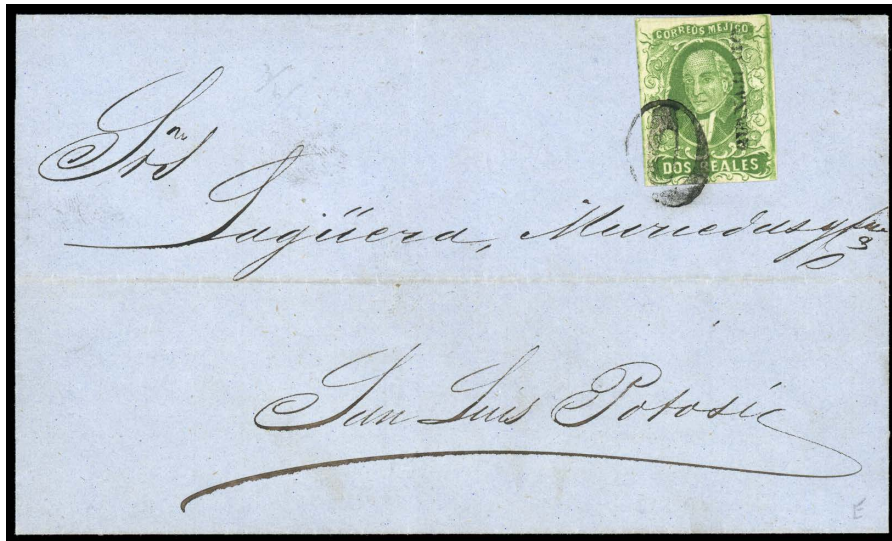 CORREOS MEJICO
DOS REALES
Sres
Lagüera, Muriedas y
San Luis Potosí
E